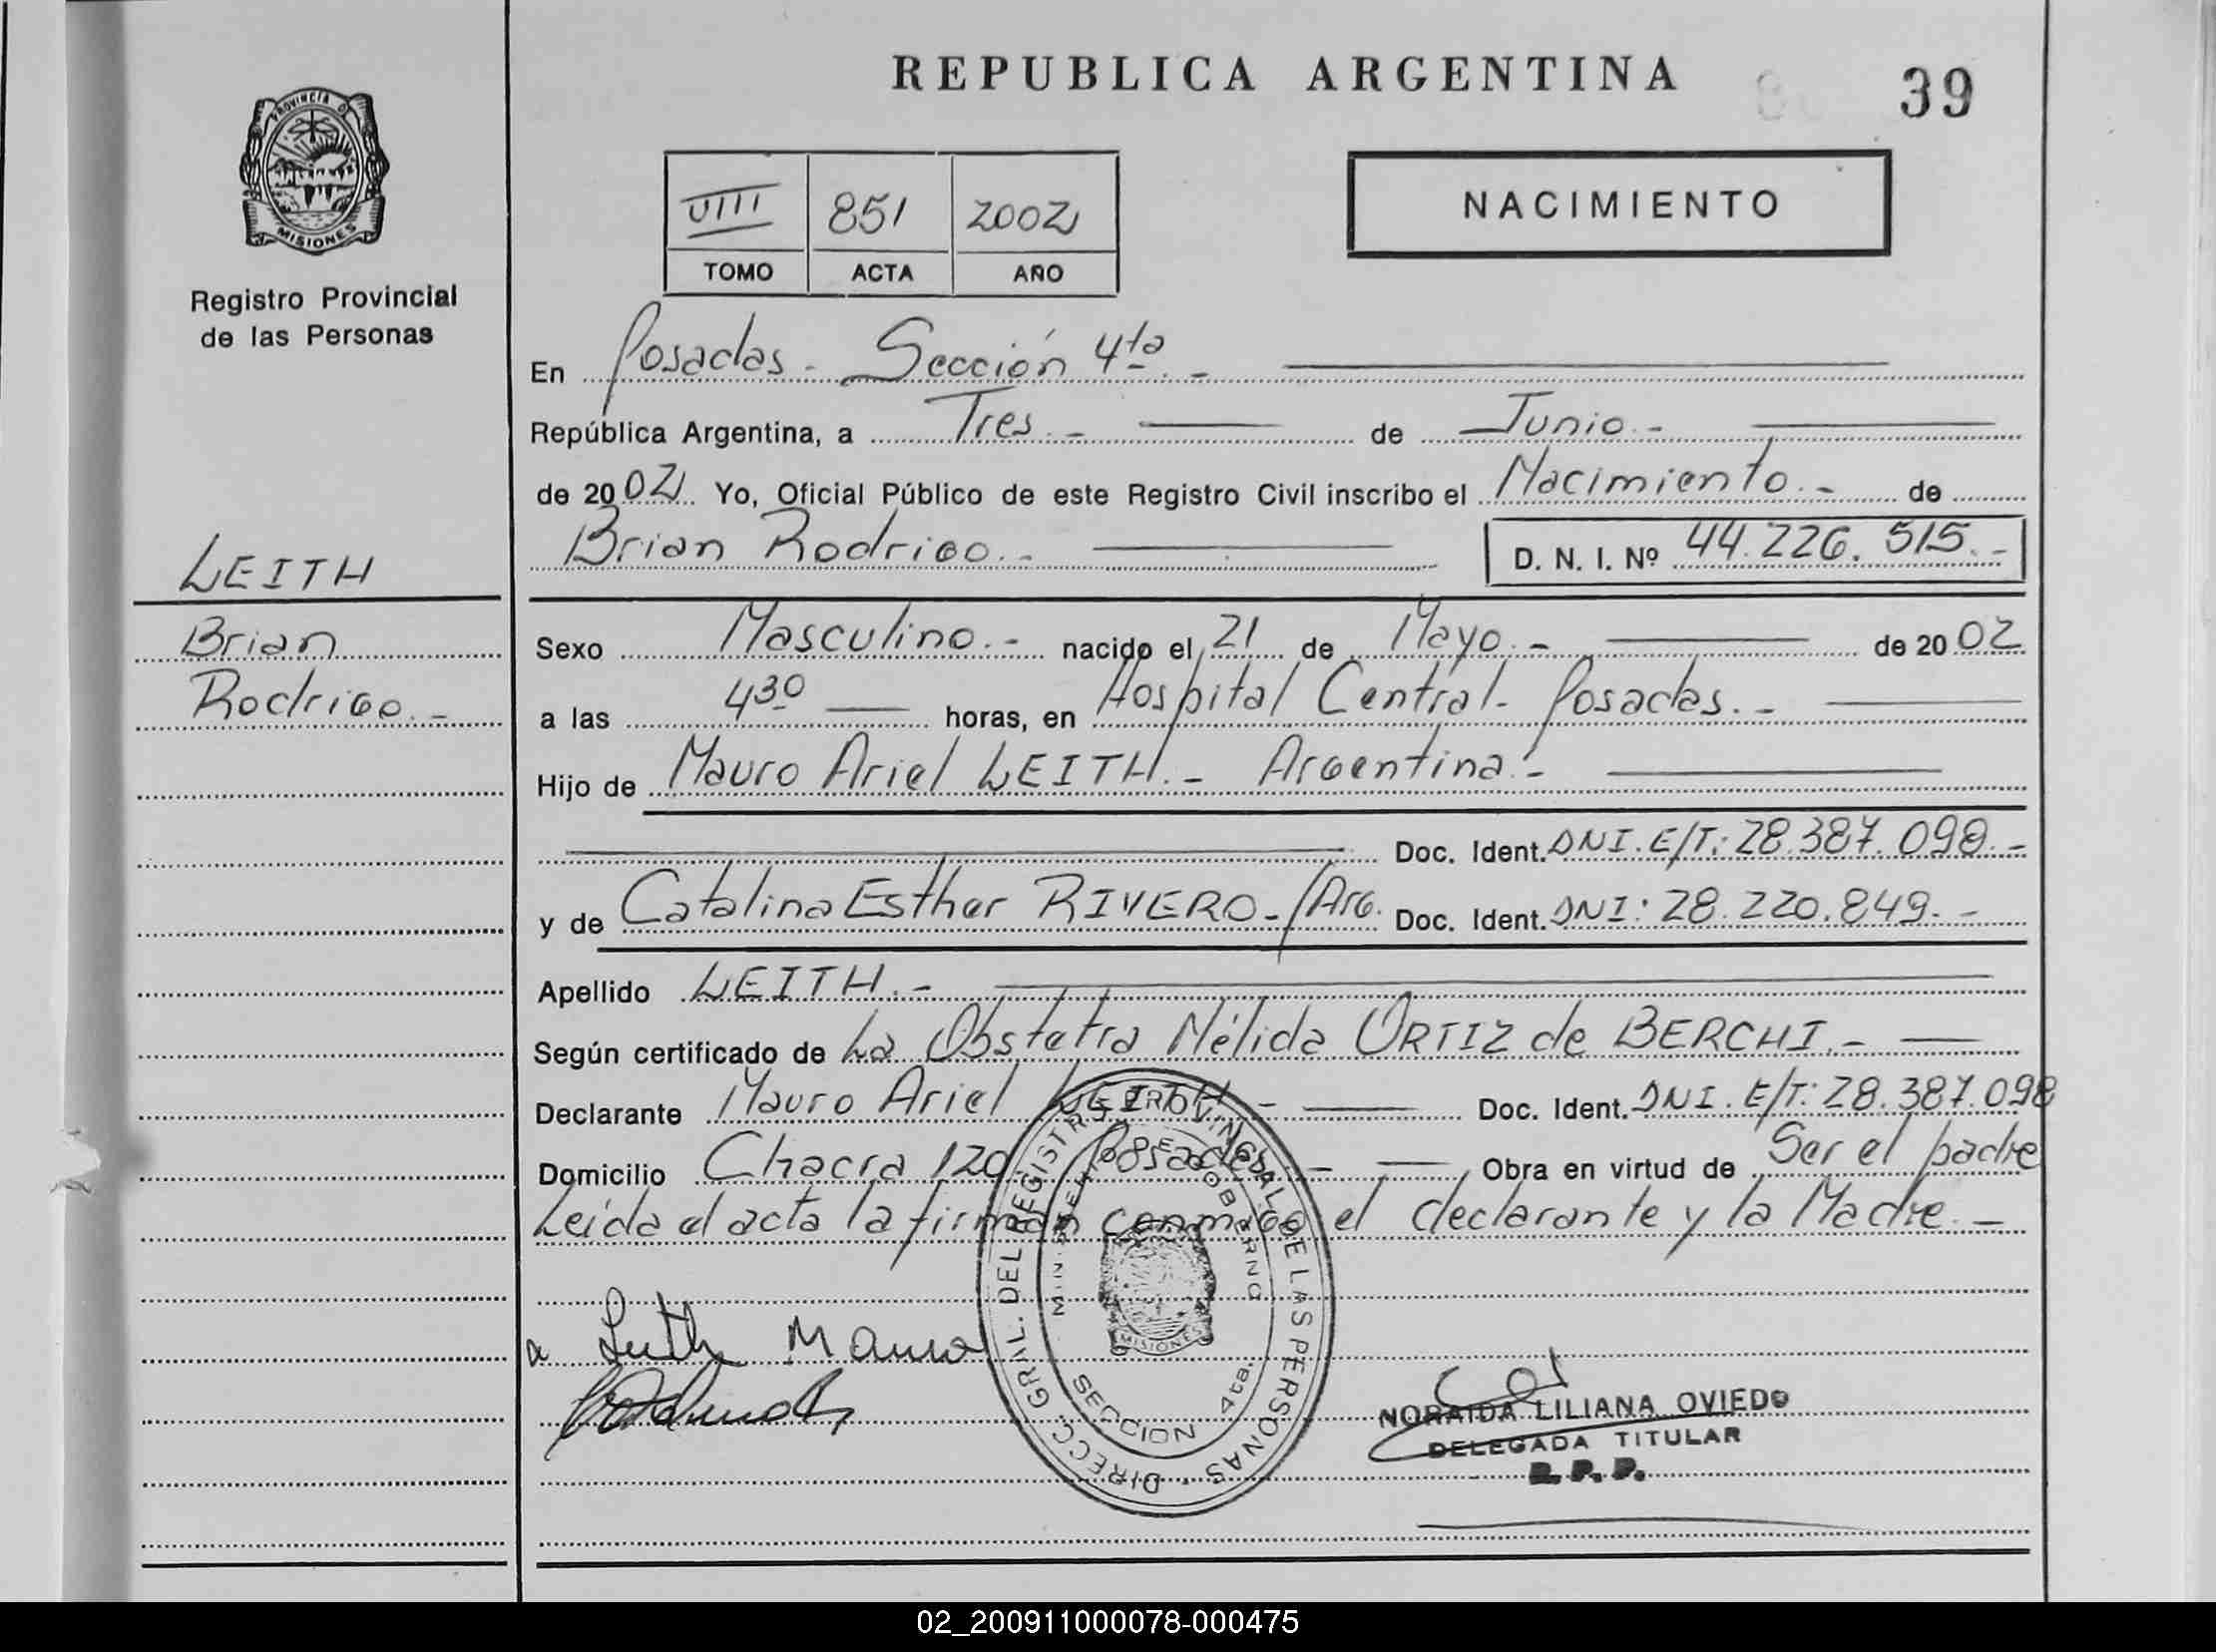 REPUBLICA ARGENTINA
39
PROVINCIA DE
MISIONES
Registro Provincial
de las Personas
VIII 851 2002
TOMO ACTA AÑO
NACIMIENTO
En Posadas - Sección 4ta. -
República Argentina, a Tres. - de Junio. -
de 2002 Yo, Oficial Público de este Registro Civil inscribo el Nacimiento. - de
Brian Rodrigo. - D. N. I. Nº 44.226.515. -
LEITH
Brian
Rodrigo. -
Sexo Masculino. - nacido el 21 de Mayo. - de 2002
a las 4 30 horas, en Hospital Central - Posadas. -
Hijo de Mauro Ariel LEITH. - Argentina. -
Doc. Ident. DNI. E/T: 28.387.098. -
y de Catalina Esther RIVERO. - /Arg. Doc. Ident. DNI: 28.220.849. -
Apellido LEITH. -
Según certificado de La Obstetra Nélida ORTIZ de BERCHI. -
Declarante Mauro Ariel LEITH - Doc. Ident. DNI. E/T: 28.387.098
Domicilio Chacra 120 Posadas. - Obra en virtud de Ser el padre
Leída el acta la firman conmigo el declarante y la Madre. -
Leith Mauro
DIRECC. GRAL. DEL REGISTRO PROVINCIAL DE LAS PERSONAS
MINISTERIO DE GOBIERNO
MISIONES
SECCION 4ta.
NORAIDA LILIANA OVIEDO
DELEGADA TITULAR
R. P. P.
02_200911000078-000475